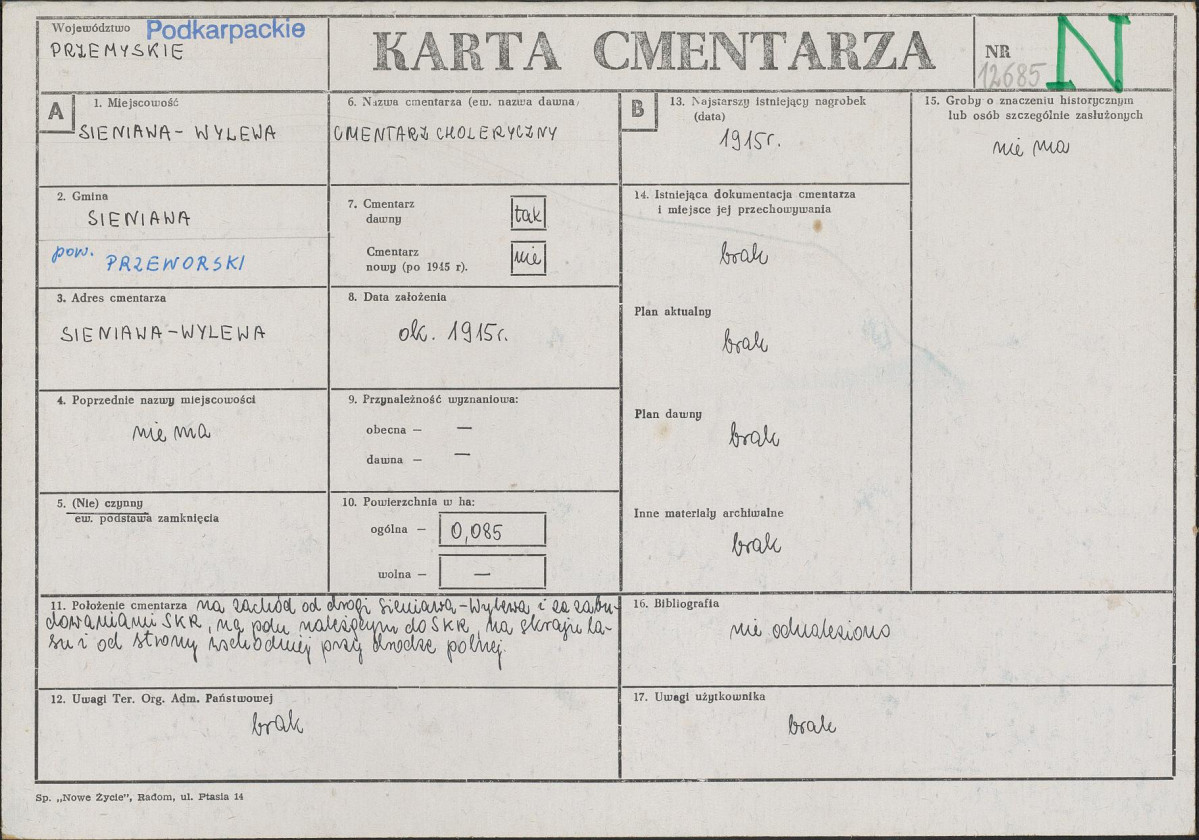 Województwo Podkarpackie
PRZEMYSKIE
KARTA CMENTARZA
NR
12685
N
A
1. Miejscowość
SIENIAWA - WYLEWA
2. Gmina
SIENIAWA
pow.
PRZEWORSKI
3. Adres cmentarza
SIENIAWA - WYLEWA
4. Poprzednie nazwy miejscowości
nie ma
5. (Nie) czynny
ew. podstawa zamknięcia
6. Nazwa cmentarza (ew. nazwa dawna)
CMENTARZ CHOLERYCZNY
7. Cmentarz
dawny
tak
Cmentarz
nowy (po 1945 r).
nie
8. Data założenia
ok. 1915r.
9. Przynależność wyznaniowa:
obecna — —
dawna — —
10. Powierzchnia w ha:
ogólna — 0,085
wolna — —
11. Położenie cmentarza na zachód od drogi Sieniawa-Wylewa i za zabu-
dowaniami SKR, na polu należącym do SKR, na skraju la-
su i od strony wschodniej przy drodze polnej.
12. Uwagi Ter. Org. Adm. Państwowej
brak
B
13. Najstarszy istniejący nagrobek
(data)
1915r.
14. Istniejąca dokumentacja cmentarza
i miejsce jej przechowywania
brak
Plan aktualny
brak
Plan dawny
brak
Inne materiały archiwalne
brak
15. Groby o znaczeniu historycznym
lub osób szczególnie zasłużonych
nie ma
16. Bibliografia
nie odnaleziono
17. Uwagi użytkownika
brak
Sp. „Nowe Życie", Radom, ul. Ptasia 14